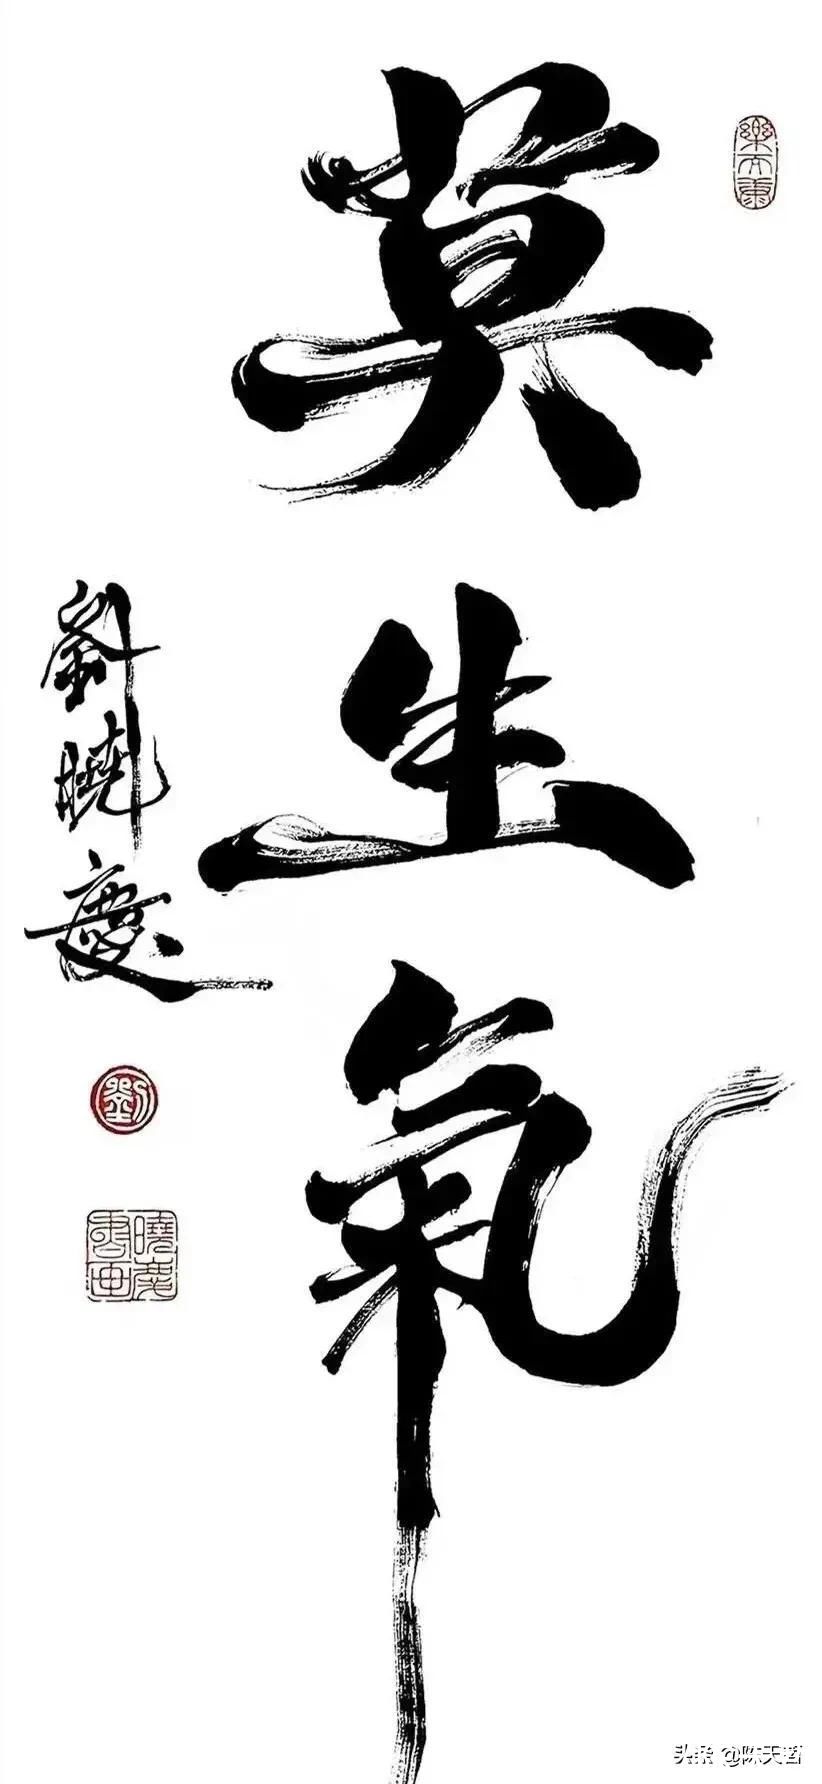 莫生氣
劉曉慶
劉
曉慶書画
头条 @陈天哲